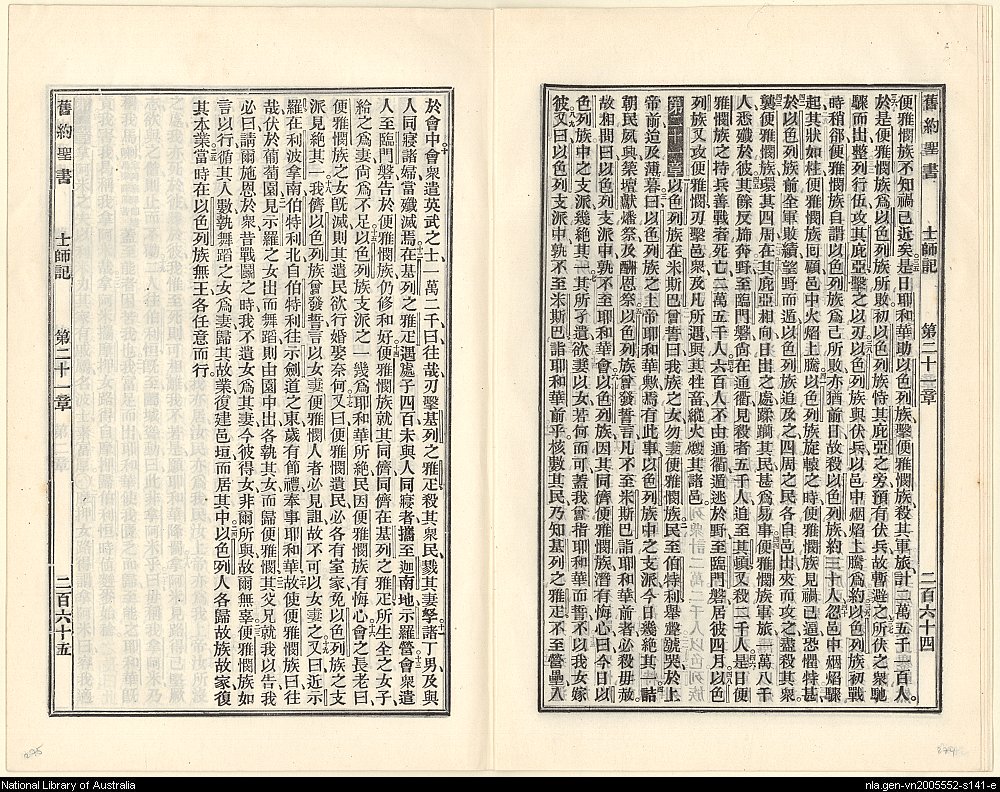 舊約聖書 士師記 第二十一章 二百六十四
便雅憫族不知禍已近矣是日耶和華助以色列族擊便雅憫族殺其軍旅計二萬五千一百人
於是便雅憫族爲以色列族所敗初以色列族恃其庇亞之旁預有伏兵故暫避之所伏之衆馳
驟而出整列行伍攻其庇亞擊之以刃以色列族與伏兵以邑中烟焰上騰爲約以色列族初戰
時稍郤便雅憫族自謂以色列族爲己所敗亦猶前日故殺以色列族約三十人忽邑中烟焰驟
起其狀如柱便雅憫族回顧邑中火焰上騰以色列族旋轅之時便雅憫族見禍已逼恐懼特甚
於以色列族前全軍敗績望野而遁以色列族追及之四周之民各自邑出夾而攻之盡殺其衆
襲便雅憫族環其四周在其庇亞相向日出之處蹂躪其民甚爲易事便雅憫族軍旅一萬八千
人悉殲於彼其餘反斾奔野至臨門磐尙在通衢見殺者五千人追至其頓又殺二千人是日便
雅憫族之持兵善戰者死亡二萬五千人六百人不由通衢遁逃於野至臨門磐居彼四月以色
列族又攻便雅憫刃擊邑衆及凡所遇與其牲畜縱火燬其諸邑
第二十一章以色列族在米斯巴曾誓曰我族之女勿妻便雅憫族民至伯特利舉聲號哭於上
帝前迨及薄暮曰以色列族之上帝耶和華歟焉有此事以色列族中之支派今日幾絕其一詰
朝民夙興築壇獻燔祭及酬恩祭以色列族曾發誓言凡不至米斯巴詣耶和華前者必殺毋赦
故相問曰以色列支派中孰不至耶和華會以色列族因其同儕便雅憫族潛有悔心曰今日以
色列族中之支派幾絕其一其所孑遺欲妻以女若何而可蓋我曾指耶和華而誓不以我女嫁
彼又曰以色列支派中孰不至米斯巴詣耶和華前乎核數其民乃知基列之雅疋不至營壘入
於會中會衆遣英武之士一萬二千曰往哉刃擊基列之雅疋殺其衆民戮其妻孥諸丁男及與
人同寢諸婦當殲滅焉在基列之雅疋遇處子四百未與人同寢者攜至迦南地示羅營會衆遣
人至臨門磐告於便雅憫族仍修和好便雅憫族就其同儕同儕在基列之雅疋所生全之女子
給之爲妻尙爲不足以色列族支派之一幾爲耶和華所絕民因便雅憫族有悔心會之長老曰
便雅憫族之女旣滅則其遺民欲行婚娶奈何又曰便雅憫遺民必各有室家免以色列族之支
派見絕其一我儕以色列族曾發誓言以女妻便雅憫人者必見詛故不可以女妻之又曰近示
羅在利波拿南伯特利北自伯特利往示劍道之東歲有節禮奉事耶和華故使便雅憫族曰往
哉伏於葡萄園見示羅之女出而舞蹈則由園中出各執其女而歸便雅憫其父兄就我以告我
必曰請爾施恩於衆昔戰鬭之時我不遺女爲其妻今彼得女非爾所與故爾無辜便雅憫族如
言以行循其人數執舞蹈之女爲妻歸其故業復建邑垣而居其中以色列人各歸故族故家復
其本業當時在以色列族無王各任意而行
舊約聖書 士師記 第二十一章 二百六十五
275
National Library of Australia
nla.gen-vn2005552-s141-e